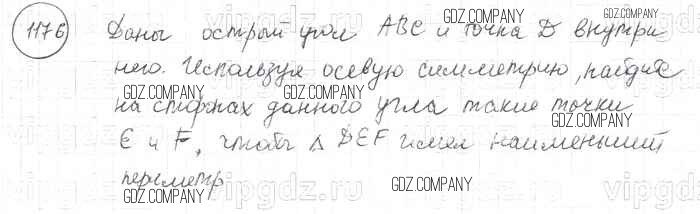 1176 Даны острый угол ABC и точка D внутри
него. Используя осевую симметрию, найдите
на сторонах данного угла такие точки
E и F, чтобы Δ DEF имел наименьший
периметр
GDZ.COMPANY
GDZ.COMPANY
GDZ.COMPANY
GDZ.COMPANY
GDZ.COMPANY
GDZ.COMPANY
GDZ.COMPANY
GDZ.COMPANY
GDZ.COMPANY
vipgdz.ru
vipgdz.ru
vipgdz.ru